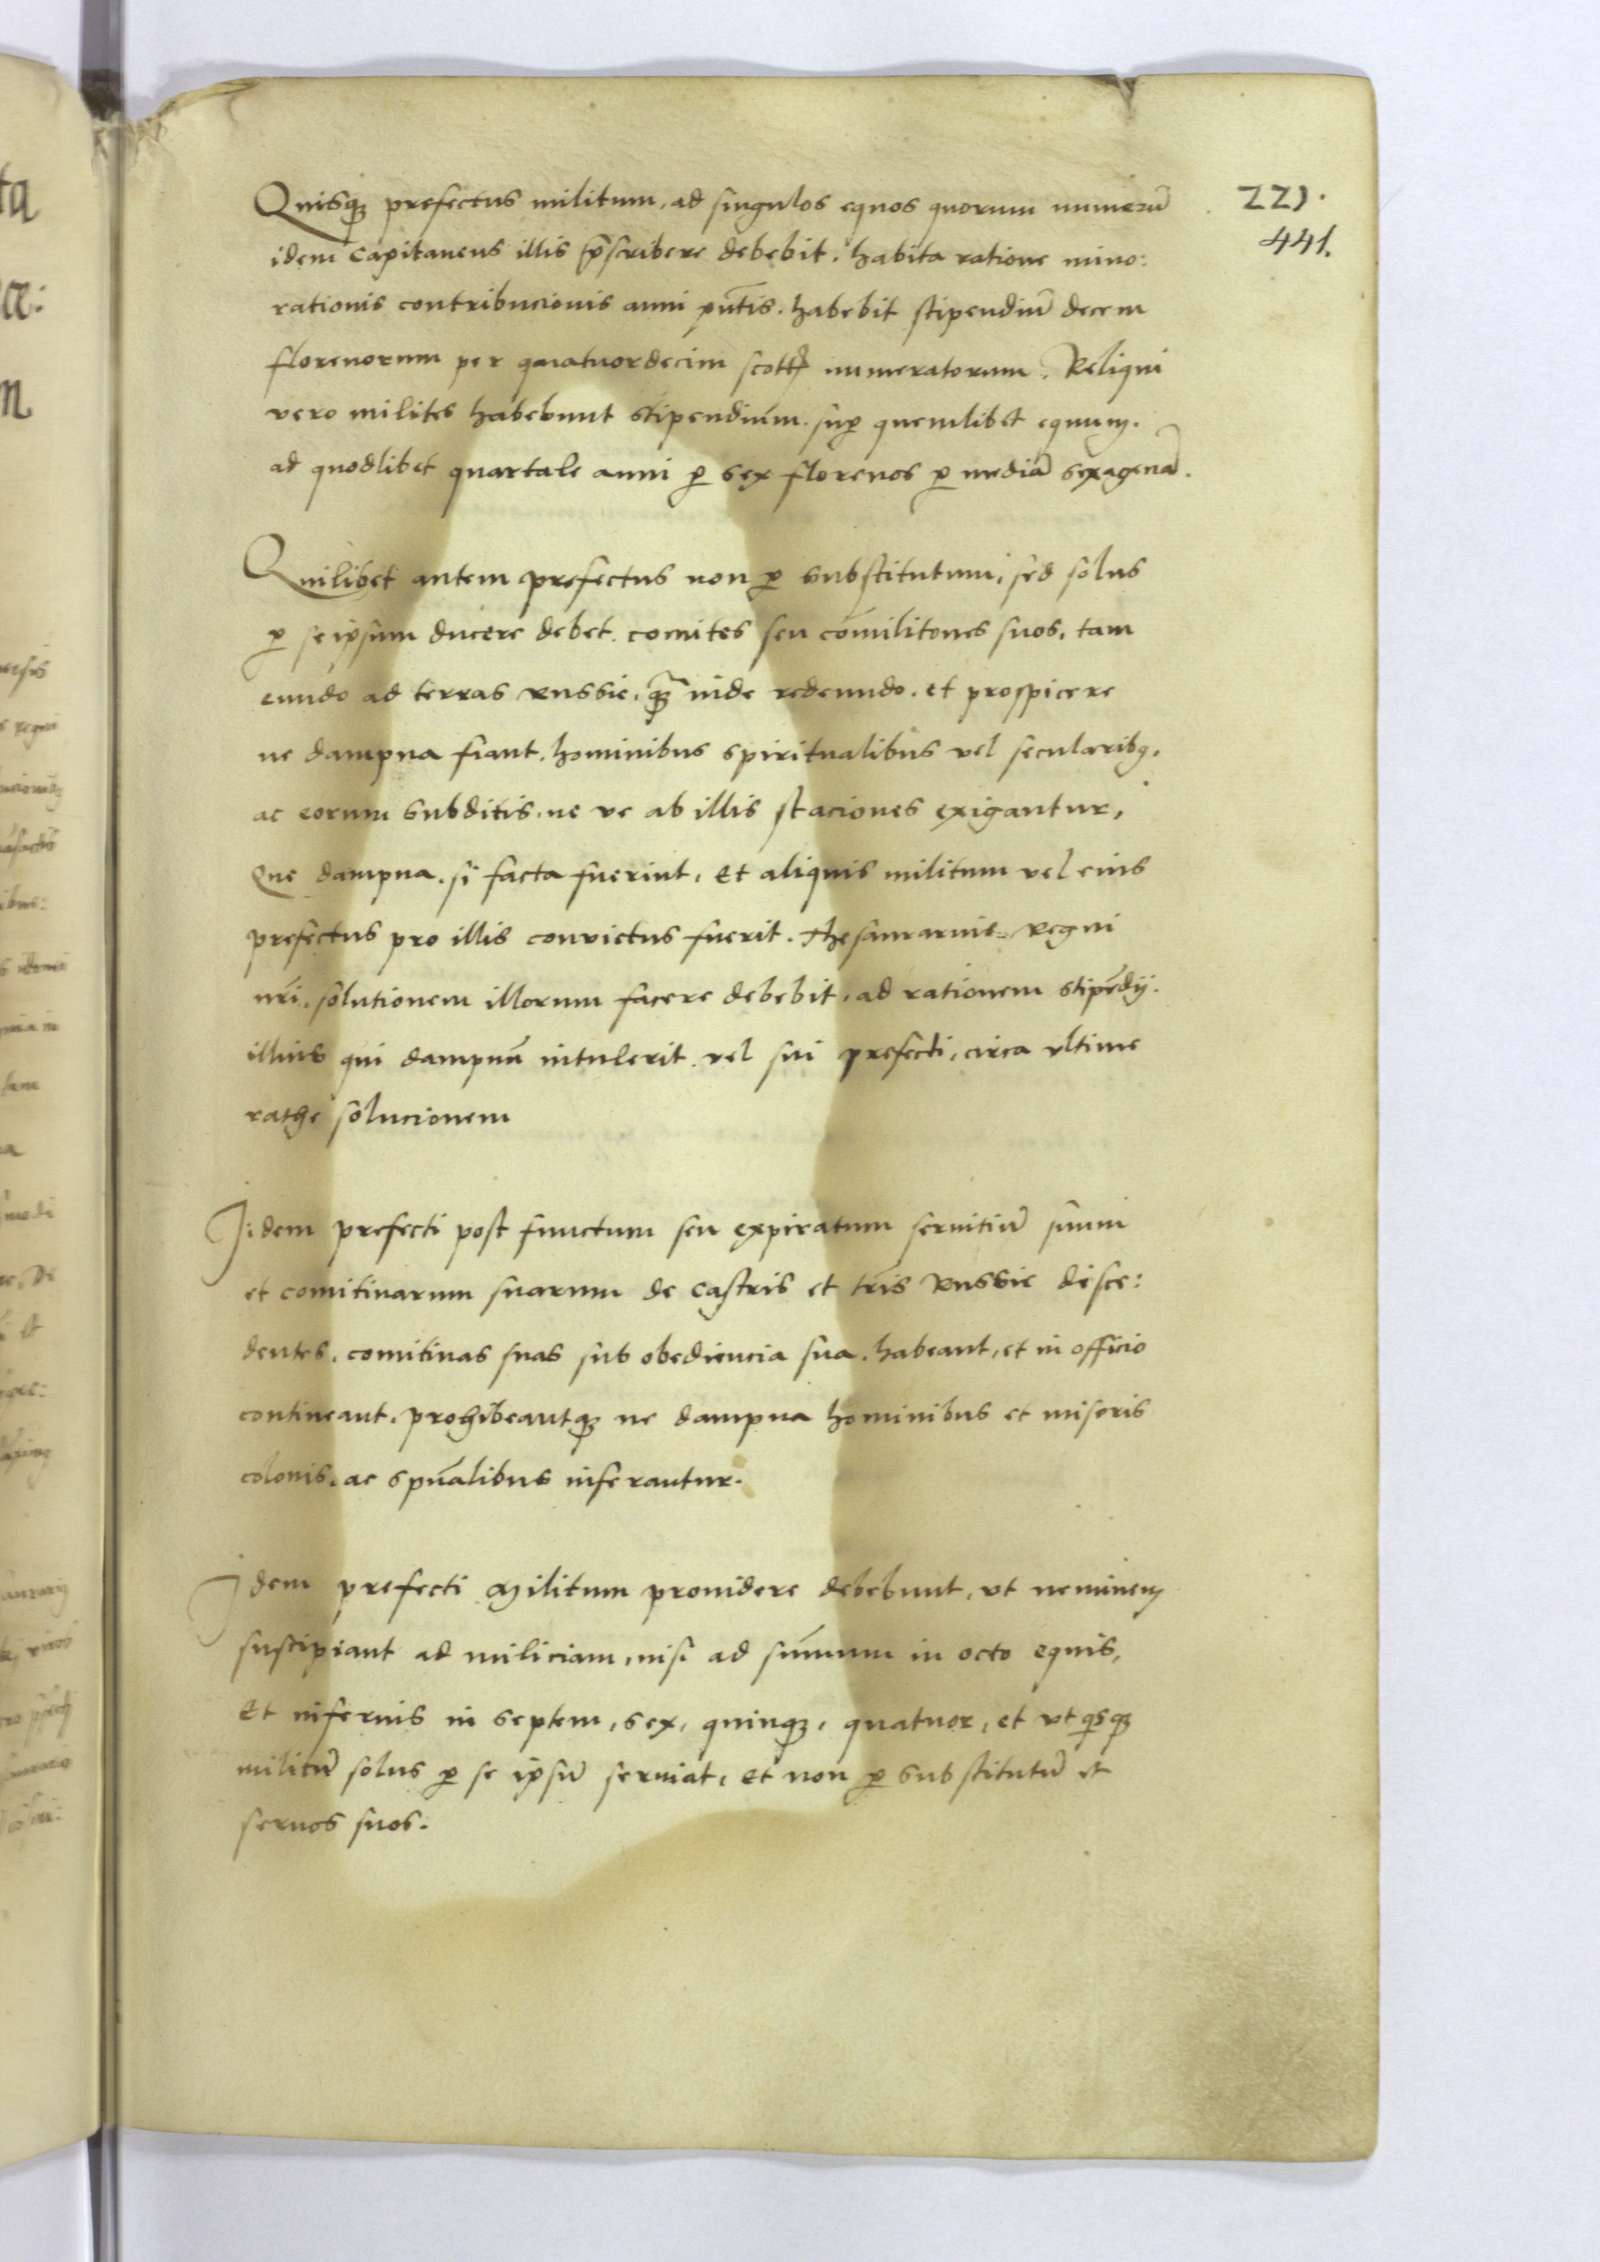 221.
441.
Quisq3 prefectus militum, ad singulos equos quorum numerū
idem Capitaneus illis p̄scribere debebit, habita ratione mino:
rationis contribucionis anni pn̄tis. habebit stipendiū decem
florenorum per quatuordecim scott3 numeratorum. Reliqui
vero milites habebunt stipendium. sup̱ quemlibet equum.
ad quodlibet quartale anni ꝑ sex florenos ꝑ mediā sexagenā.
Quilibet autem prefectus non ꝑ substitutum, sed solus
ꝑ se ipsum ducere debet. comites seu cōmilitones suos, tam
eundo ad terras Russie, q̄3 inde redeundo. et prospicere
ne dampna fiant. hominibus spiritualibus vel secularibq.
ac eorum subditis. ne ve ab illis staciones exigantur,
Que dampna. si facta fuerint, Et aliquis militum vel eius
prefectus pro illis convictus fuerit. Thesaurarius Regni
nr̄i, solutionem illorum facere debebit, ad rationem stipēdij.
illius qui dampnū intulerit. vel sui prefecti, circa ultime
rathe solucionem
Iidem prefecti post functum seu expiratum servitiū suum
et comitivarum suarum de castris et tr̄is Russie disce:
dentes, comitivas suas sub obediencia sua. habeant, et in officio
contineant. prohibeantq3 ne dampna hominibus et miseris
colonis. ac spūalibus inferantur.
Idem prefecti Militum providere debebunt, ut neminem
suscipiant ad miliciam, nisi ad sūmum in octo equis,
Et inferius in septem, sex, quinq3, quatuor, et ut qisq3
militū solus ꝑ se ipsū serviat, et non ꝑ substitutū et
servos suos.